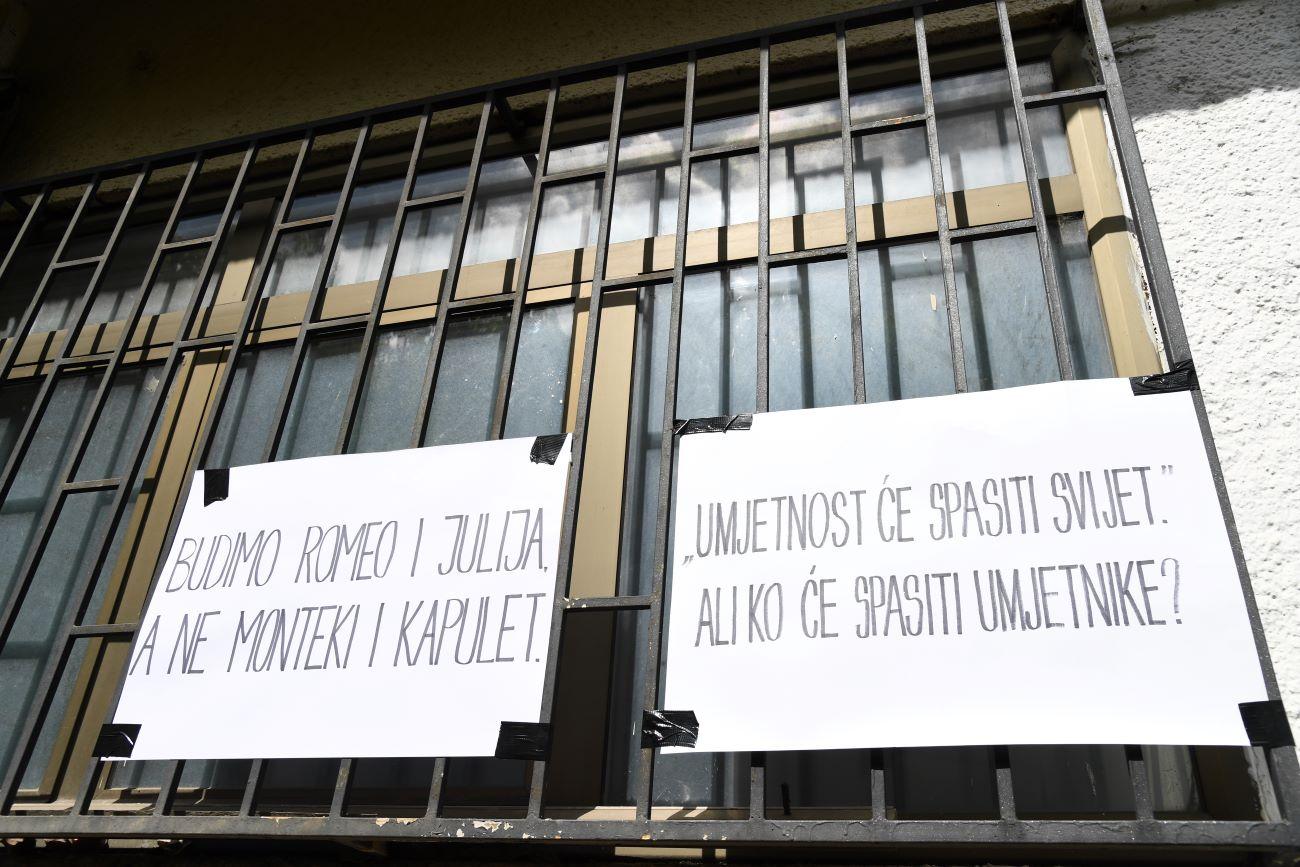 BUDIMO ROMEO I JULIJA,
A NE MONTEKI I KAPULET.
„UMJETNOST ĆE SPASITI SVIJET.”
ALI KO ĆE SPASITI UMJETNIKE?